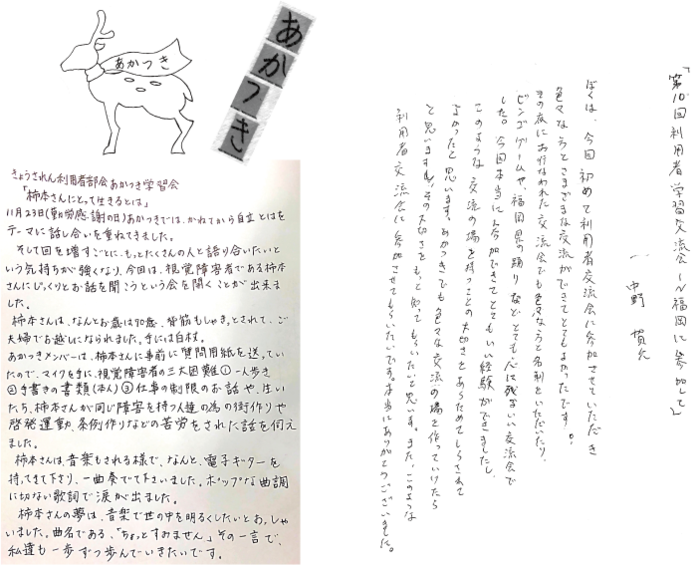 あかつき
あかつき
きょうされん利用者部会あかつき学習会
「柿本さんにとって生きるとは」
11月23日(勤労感謝の日)あかつきでは、かねてから自立とはを
テーマに話し合いを重ねてきました。
そして回を増すごとに、もっとたくさんの人と語り合いたいと
いう気持ちが強くなり、今回は、視覚障害者である柿本
さんにじっくりとお話を聞こうという会を開くことが出来ま
した。
柿本さんは、なんとお歳は90歳、背筋もしゃきっとされて、ご
夫婦でお越しになられました。手には白杖。
あかつきメンバーは、柿本さんに事前に質問用紙を送ってい
たので、マイクを手に、視覚障害者の三大困難①一人歩き
②手書きの書類(本人)③仕事の制限のお話や、生い
たち、柿本さんが同じ障害を持つ人達の為の街作りや
啓発運動、条例作りなどの苦労をされた話を伺え
ました。
柿本さんは、音楽もされる様で、なんと、電子ギターを
持ってきて下さり、一曲奏でて下さいました。ポップな曲調
に切ない歌詞で涙が出ました。
柿本さんの夢は、音楽で世の中を明るくしたいとおっしゃ
いました。曲名である、「ちょっとすみません」その一言で、
私達も一歩ずつ歩んでいきたいです。
「第10回利用者学習交流会〜IN福岡に参加して」
中野
ぼくは、今回初めて利用者交流会に参加させていただき
色々な方とさまざまな交流ができてとてもよかったです。
その夜におこなわれた交流会でも色々な方と名刺といただいたり、
ビンゴゲームや、福岡県の踊りなどとても心に残るいい交流会で
した。今回本当に参加できてとてもいい経験ができましたし、
このような交流の場を持つことの大切さをあらためてしらされて
よかったと思います。あかつきでも色々な交流の場を作っていけたら
と思いますし、その大切さをもっと知ってもらいたいと思います。また、このような
利用者交流会に参加させてもらいたいです。本当にありがとうございました。